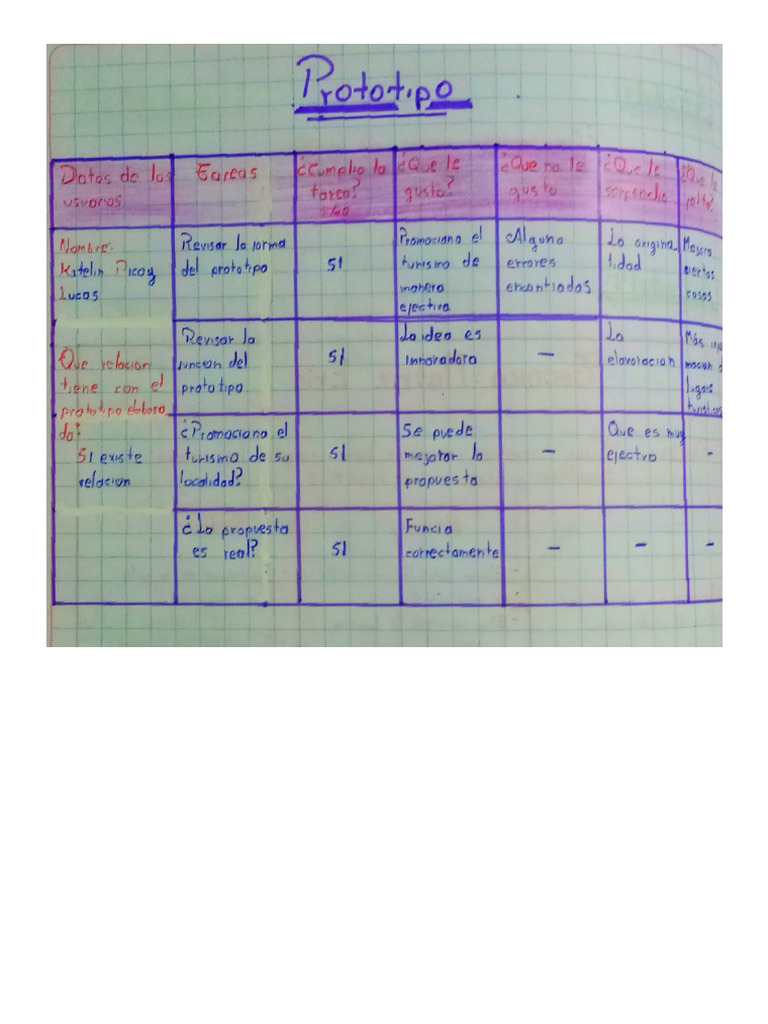 Prototipo
Datos de los
usuarios
Tareas
¿Cumplio la
tarea?
SI/NO
¿Que le
gusto?
¿Que no le
gusto
¿Que le
sorpendio
¿Que le
falto?
Nombre:
Katelin Picoy
Lucas
Revisar la forma
del prototipo
SI
Promociona el
turismo de
manera
efectiva
Alguno
errores
encontrados
La origina
lidad
Mejora
ciertas
cosas
Que relacion
tiene con el
prototipo elabora
do?
SI existe
relacion
Revisar la
funcion del
prototipo
SI
La idea es
innovadora
—
La
elavoracion
Más
macion
lugare
turisticos
¿Promociona el
turismo de su
localidad?
SI
Se puede
mejorar la
propuesta
—
Que es muy
efectvo
-
¿La propuesta
es real?
SI
Funcia
correctamente
—
—
-